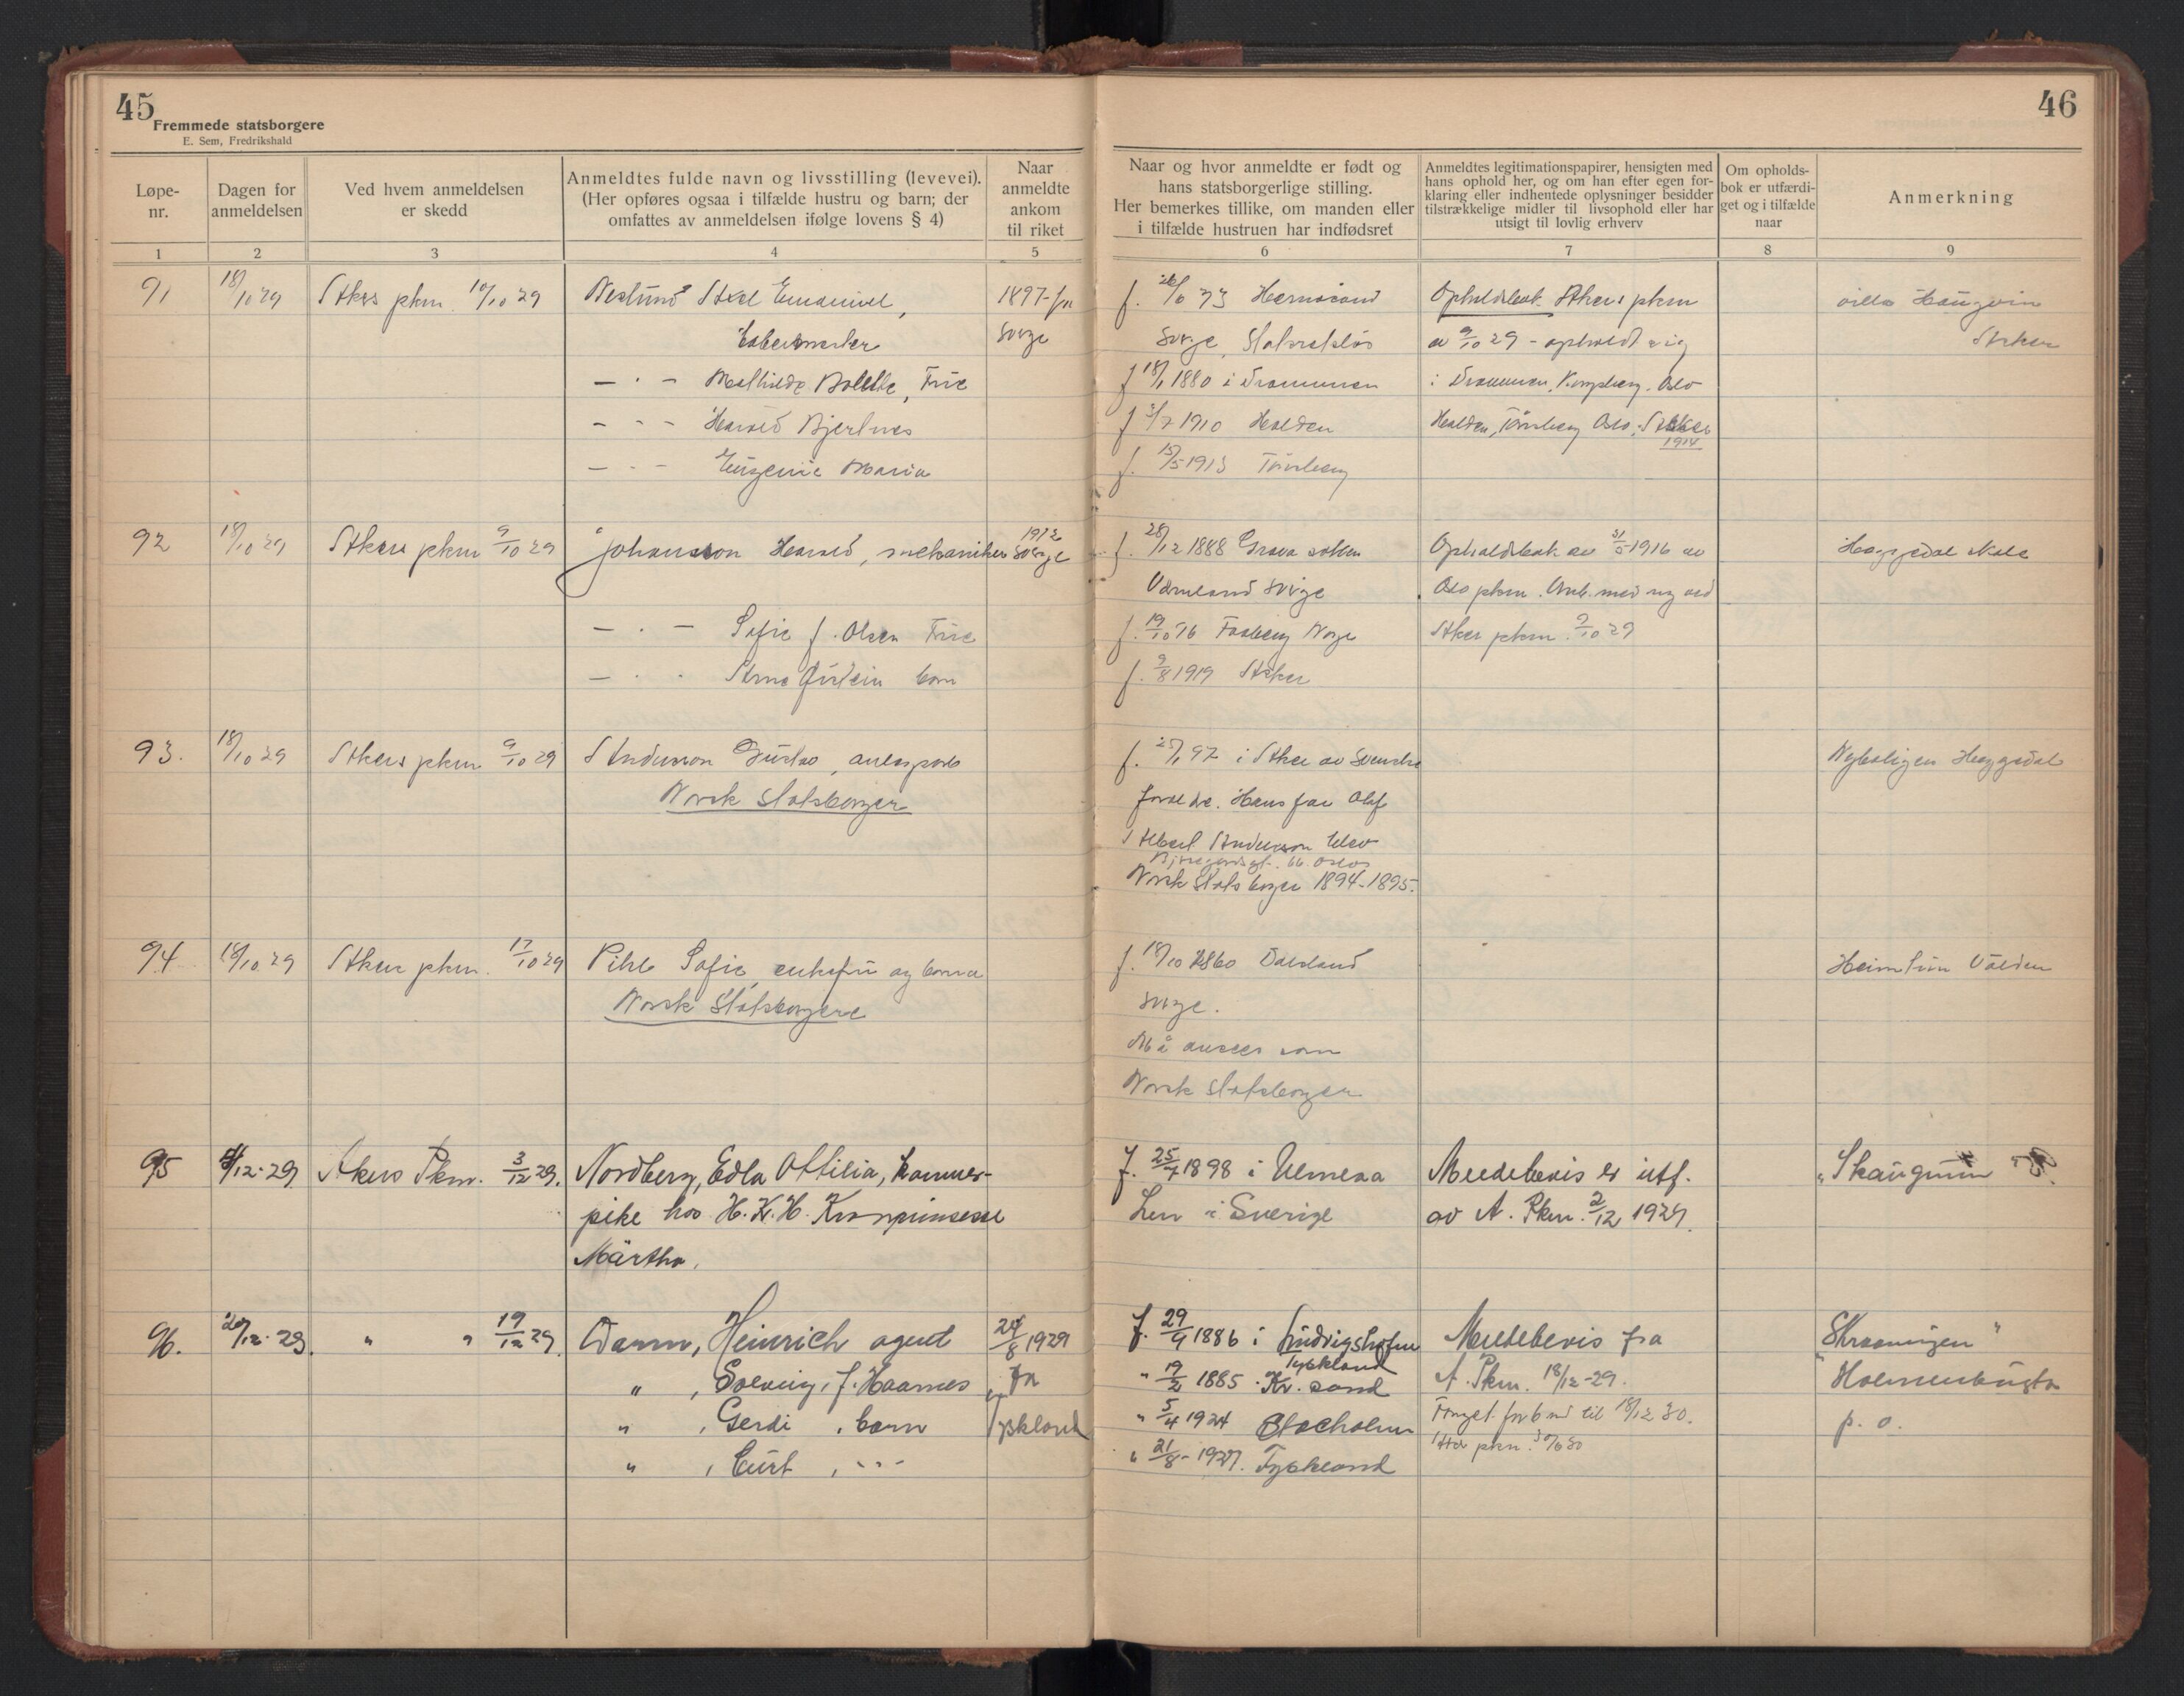 45
Fremmede statsborgere
E. Sem, Fredrikshald
Løpe-
nr.
Dagen for
anmeldelsen
Ved hvem anmeldelsen
er skedd
Anmeldtes fulde navn og livsstilling (levevei).
(Her opføres ogsaa i tilfælde hustru og barn; der
omfattes av anmeldelsen ifølge lovens § 4)
Naar
anmeldte
ankom
til riket
1 2 3 4 5
91 18/10 29 Akers pkm. 10/10 29 Axel Emanuel, 1897 fra
Sverge
— · — Mathilde Bolette, Frue
— · — Harald Bjertnes
— · — Eugenie Maria
92 18/10 29 Akers pkm 9/10 29 Johansson Harald, mekaniker 1912 Sverge
— · — Sofie f. Olsen Frue
— · · Arne Øistein barn
93. 18/10 29 Akers pkm 9/10 29 Anderson Gustav,
Norsk Statsborger
94 18/10 29 Akers pkm. 17/10 29 Pihl Sofie, enkefru og barn
Norsk Statsborgere
95 4/12-29 Akers Pkm. 3/12 29. Nordberg, Edla Ottilia, kammer-
pike hos H. K. H. Kronprinsesse
Märtha.
96. 20/12-29. " " 19/12 29. Damm, Heinrich agent 24/8 1929
" , Solveig, f. Haarnes fra
" , Gerdi , barn Tyskland
" , Curt , - " -
46
Naar og hvor anmeldte er født og
hans statsborgerlige stilling.
Her bemerkes tillike, om manden eller
i tilfælde hustruen har indfødsret
Anmeldtes legitimationspapirer, hensigten med
hans ophold her, og om han efter egen for-
klaring eller indhentede oplysninger besidder
tilstrækkelige midler til livsophold eller har
utsigt til lovlig erhverv
Om opholds-
bok er utfærdi-
get og i tilfælde
naar
Anmerkning
6 7 8 9
f. 73 Hernosand Opholdsbok Akers pkm villa Haugvin
Sverge, Statsløs av 9/10 29 - opholdt sig Asker
f 18/1 1880 i Drammen i Drammen, Kongsberg, Oslo
f 3/7 1910 Halden Halden, Tönsberg Oslo, Asker
1914
f. 15/5 1913 Tönsberg
f. 28/12 1888 Grava sokken Opholdsbok av 31/5 1916 av Heggedal skole
Värmland Sverge Oslo pkm. Omb. med ny ved
f. 19/10 76 Norge Akers pkm. 9/10 29
f. 9/8 1919 Asker
f. 97 i Asker av svenske Nyboligen Heggedal
forældre. Hans far Olaf
Albert Anderson blev
66. Oslo
Norsk Statsborger 1894-1895.
f. 18/10 1860 Dalsland Heimtun Valden
Sverge.
Må ansees som
Norsk statsborger
f. 25/4 1898 i Umeaa Meldebevis er utf. "Skaugum"
Len i Sverige av A. Pkm. 2/12 1929.
f. 29/9 1886 i Ludvigshafen Meldebevis fra
Tyskland
" 19/2 1885 · Kr. sand A. Pkm. 18/12-29. Holmenbugta
" 5/4 1924 Stockholm Forget. for 6 md til 18/12 30. p. o.
" 21/8 - 1927. Tyskland